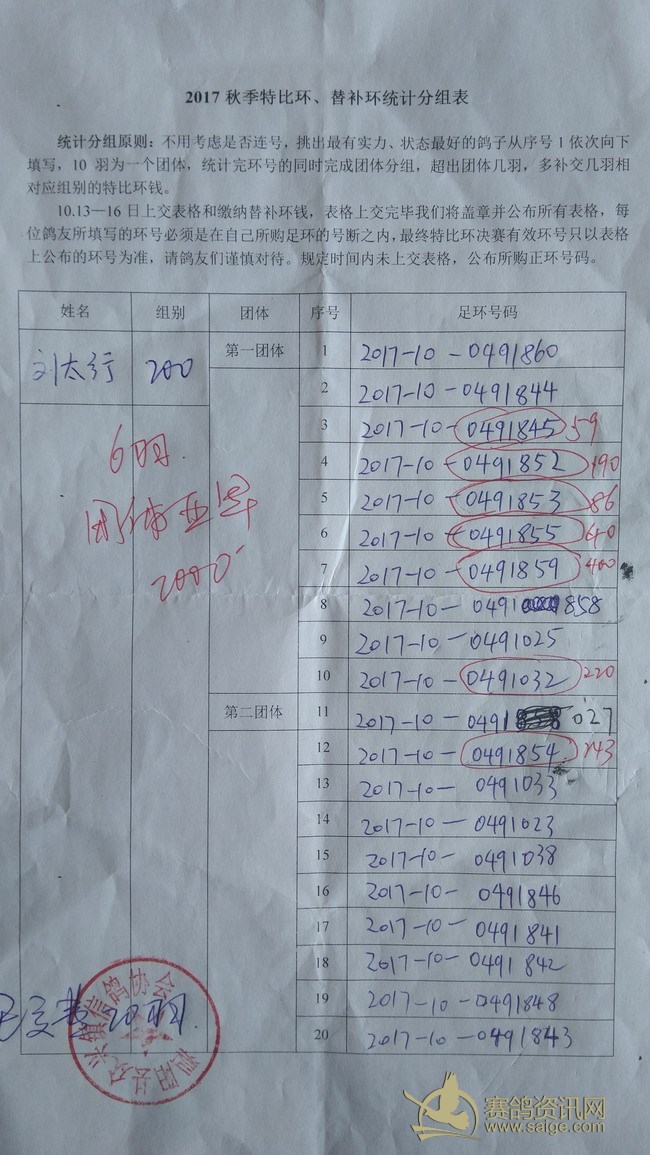 2017 秋季特比环、替补环统计分组表
统计分组原则：不用考虑是否连号，挑出最有实力、状态最好的鸽子从序号 1 依次向下
填写，10 羽为一个团体，统计完环号的同时完成团体分组，超出团体几羽，多补交几羽相
对应组别的特比环钱。
10.13—16 日上交表格和缴纳替补环钱，表格上交完毕我们将盖章并公布所有表格，每
位鸽友所填写的环号必须是在自己所购足环的号断之内，最终特比环决赛有效环号只以表格
上公布的环号为准，请鸽友们谨慎对待。规定时间内未上交表格，公布所购正环号码。
姓名 组别 团体 序号 足环号码
刘太行 200 第一团体 1 2017-10-0491860
2 2017-10-0491844
3 2017-10-0491845 59
4 2017-10-0491852 190
5 2017-10-0491853 86
6 2017-10-0491855 60
7 2017-10-0491859 400
8 2017-10-0491858
9 2017-10-0491025
10 2017-10-0491032 220
6羽
团体亚军
2000
第二团体 11 2017-10-0491027
12 2017-10-0491854 243
13 2017-10-0491033
14 2017-10-0491023
15 2017-10-0491038
16 2017-10-0491846
17 2017-10-0491841
18 2017-10-0491842
19 2017-10-0491848
20 2017-10-0491843
已交替 羽
泗阳县众兴镇信鸽协会
赛鸽资讯网
www.saige.com